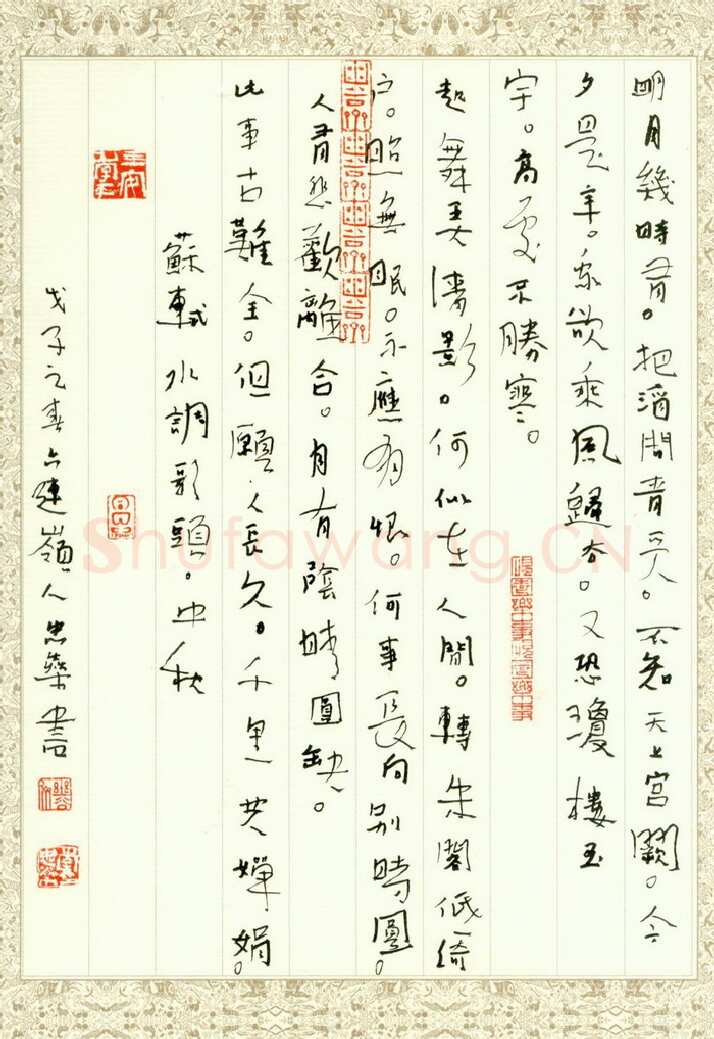 明月幾時有。把酒問青天。不知天上宮闕。今
夕是年。我欲乘風歸去。又恐瓊樓玉
宇。高處不勝寒。
起舞弄清影。何似在人間。轉朱閣低綺
户。照無眠。不應有恨。何事長向别時圓。
人有悲歡離合。月有陰晴圓缺。
此事古難全。但願人長久。千里共嬋娟。
蘇軾水調歌頭。中秋
戊子之春六連嶺人忠書
Shufawang.CN